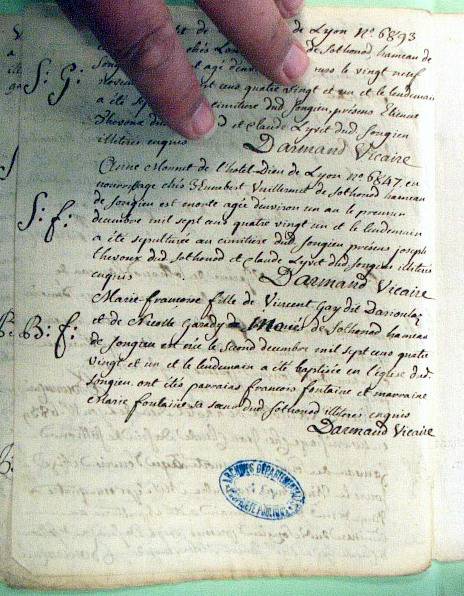 de Lyon n.o 6893
de Sothonod, hameau de
Songieu
agé d'environ le vingt neuf
sept cens quatre vingt et un et le lendemain
S: G: a été cimitiere dud Songieu présens Etienne
Thevoux dud et Claude Lyvet dud Songieu
illiteres enquis
Darmand Vicaire
Anne Monnet de l'hotel Dieu de Lyon n.o 6847. en
nourrissage chés humbert Vuillermet de Sothonod hameau
de Songieu est morte agée d'environ un an le premier
S: f: decembre mil sept cens quatre vingt un et le lendemain
a été sepulturée au cimitiere dud Songieu présens joseph
thevoux dud Sothonod et Claude Lyvet dud Songieu illiteres
enquis
Darmand Vicaire
Marie françoise fille de Vincent Gay dit Darioulaz
B: f: et de Nicolle de Sothonod hameau
de Songieu est née le Second decembre mil sept cens quatre
vingt et un et le lendemain a été baptisée en l'eglise dud
Songieu, ont étés parrains francois fontaine et marraine
Marie fontaine sa soeur dud Sothonod illiteres enquis
Darmand Vicaire
ARCHIVES DÉPARTEMENTALES
PROPRIÉTÉ PUBLIQUE